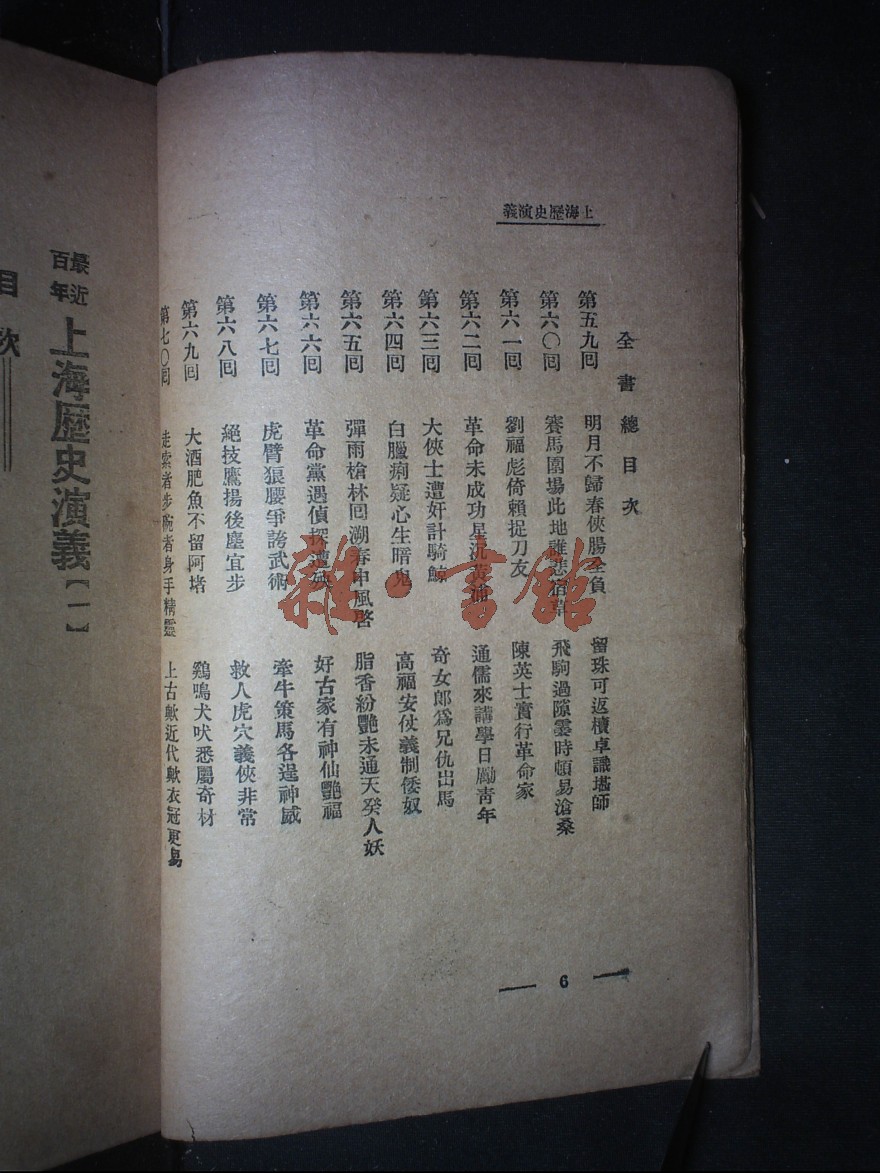 上海歷史演義
全書總目次
第五九回 明月不歸春俠腸全負 留珠可返櫝卓識塔師
第六〇回 賽馬圍場此地離悲宿草 飛駒過隙霎時頓易滄桑
第六一回 劉福彪倚賴捉刀友 陳英士實行革命家
第六二回 革命未成功星沉黃浦 通儒來講學日勵青年
第六三回 大俠士遭奸計騎鯨 奇女郎爲兄仇出馬
第六四回 白臘痢疑心生暗鬼 高福安仗義制倭奴
第六五回 彈雨槍林回溯春申風 脂香紛艷未通天癸人妖
第六六回 革命黨遇偵探遭殃 好古家有神仙艷福
第六七回 虎臂狼腰爭誇武術 牽牛策馬各逞神威
第六八回 絕技鷹揚後塵宜步 救人虎穴義俠非常
第六九回 大酒肥魚不留阿堵 鷄鳴犬吠悉屬奇材
第七〇回 走索者步腕者身手精靈 上古歟近代歟衣冠更易
6
雜·書館
最近百年 上海歷史演義【一】
目次